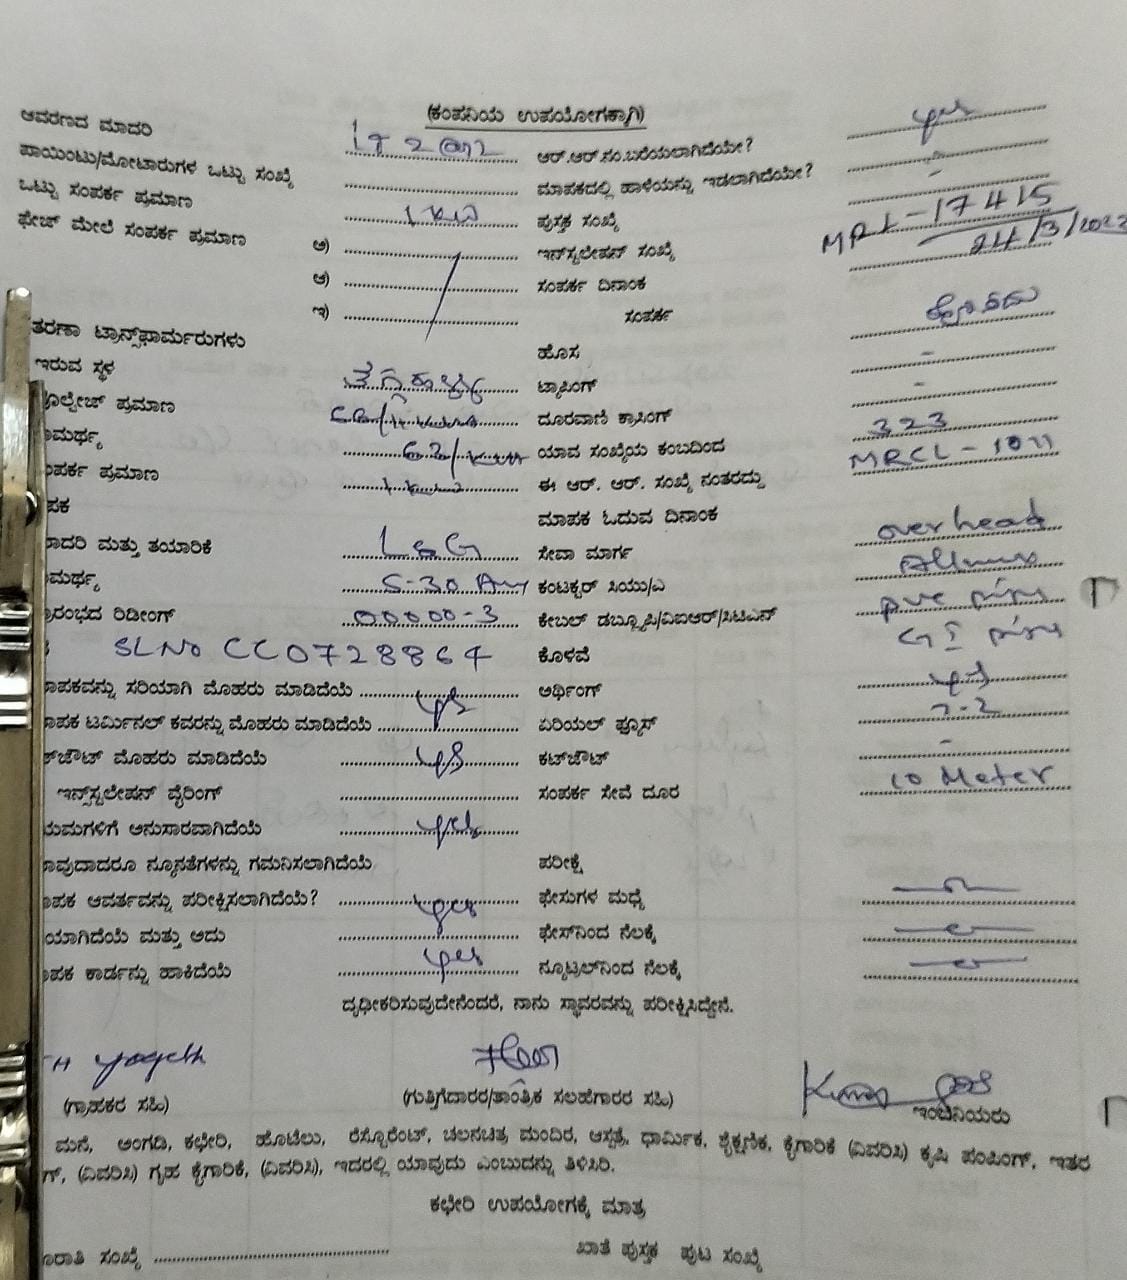 (ಕಂಪನಿಯ ಉಪಯೋಗಕ್ಕಾಗಿ)
ಆವರಣದ ಮಾದರಿ ಆರ್.ಆರ್.ನಂ.ಬರೆಯಲಾಗಿದೆಯೇ? yes
ಪಾಯಿಂಟು/ಮೋಟಾರುಗಳ ಒಟ್ಟು ಸಂಖ್ಯೆ ಮಾಪಕದಲ್ಲಿ ಹಾಳೆಯನ್ನು ಇಡಲಾಗಿದೆಯೇ? -
ಒಟ್ಟು ಸಂಪರ್ಕ ಪ್ರಮಾಣ 1 KW ಪುಸ್ತಕ ಸಂಖ್ಯೆ
ಫೇಜ್ ಮೇಲೆ ಸಂಪರ್ಕ ಪ್ರಮಾಣ ಅ) ಇನ್‌ಸ್ಟಲೇಷನ್ ಸಂಖ್ಯೆ MRL-17415
ಆ) ಸಂಪರ್ಕ ದಿನಾಂಕ 24/3/2022
ಇ) ಸಂಪರ್ಕ
ತರಣಾ ಟ್ರಾನ್ಸ್‌ಫಾರ್ಮರುಗಳು ಹೊಸ
ಇರುವ ಸ್ಥಳ ಟ್ಯಾಪಿಂಗ್ -
ವೋಲ್ಟೇಜ್ ಪ್ರಮಾಣ ದೂರವಾಣಿ ಕ್ರಾಸಿಂಗ್ -
ಾಮರ್ಥ್ಯ 63/ ಯಾವ ಸಂಖ್ಯೆಯ ಕಂಬದಿಂದ 323
ಂಪರ್ಕ ಪ್ರಮಾಣ ಈ ಆರ್. ಆರ್. ಸಂಖ್ಯೆ ನಂತರದ್ದು MRCL-1011
ಪಕ ಮಾಪಕ ಓದುವ ದಿನಾಂಕ
ಾದರಿ ಮತ್ತು ತಯಾರಿಕೆ L&G ಸೇವಾ ಮಾರ್ಗ overhead
ಾಮರ್ಥ್ಯ 5-30 Am ಕಂಟಕ್ಟರ್ ಸಿಯು/ಎ
ಾರಂಭದ ರಿಡೀಂಗ್ 00000-3 ಕೇಬಲ್ ಡಬ್ಲ್ಯೂಪಿ/ವಿಐಆರ್/ಸಿಟಿಎಸ್ pvc
SL No CC0728864 ಕೊಳವೆ GI
ಾಪಕವನ್ನು ಸರಿಯಾಗಿ ಮೊಹರು ಮಾಡಿದೆಯೆ yes ಅರ್ಥಿಂಗ್ yes
ಾಪಕ ಟರ್ಮಿನಲ್ ಕವರನ್ನು ಮೊಹರು ಮಾಡಿದೆಯೆ ಏರಿಯಲ್ ಫ್ಯೂಸ್
ಕಟ್‌ಔಟ್ ಮೊಹರು ಮಾಡಿದೆಯೆ yes ಕಟ್‌ಔಟ್ -
ಇನ್‌ಸ್ಟಲೇಷನ್ ವೈರಿಂಗ್ ಸಂಪರ್ಕ ಸೇವೆ ದೂರ 10 Meter
ಯಮಗಳಿಗೆ ಅನುಸಾರವಾಗಿದೆಯೆ yes
ಾವುದಾದರೂ ನ್ಯೂನತೆಗಳನ್ನು ಗಮನಿಸಲಾಗಿದೆಯೆ ಪರೀಕ್ಷೆ
ಾಪಕ ಆವರ್ತವನ್ನು ಪರೀಕ್ಷಿಸಲಾಗಿದೆಯೆ? yes ಫೇಸುಗಳ ಮಧ್ಯೆ
ಯಾಗಿದೆಯೆ ಮತ್ತು ಅದು ಫೇಸ್‌ನಿಂದ ನೆಲಕ್ಕೆ
ಾಪಕ ಕಾರ್ಡನ್ನು ಹಾಕಿದೆಯೆ yes ನ್ಯೂಟ್ರಲ್‌ನಿಂದ ನೆಲಕ್ಕೆ
ದೃಢೀಕರಿಸುವುದೇನೆಂದರೆ, ನಾನು ಸ್ಥಾವರವನ್ನು ಪರೀಕ್ಷಿಸಿದ್ದೇನೆ.
(ಗ್ರಾಹಕರ ಸಹಿ) (ಗುತ್ತಿಗೆದಾರರ/ತಾಂತ್ರಿಕ ಸಲಹೆಗಾರರ ಸಹಿ) ಇಂಜಿನಿಯರು
ಮನೆ, ಅಂಗಡಿ, ಕಛೇರಿ, ಹೊಟೆಲು, ರೆಸ್ಟೋರೆಂಟ್, ಚಲನಚಿತ್ರ ಮಂದಿರ, ಆಸ್ಪತ್ರೆ, ಧಾರ್ಮಿಕ, ಶೈಕ್ಷಣಿಕ, ಕೈಗಾರಿಕೆ (ವಿವರಿಸಿ) ಕೃಷಿ ಪಂಪಿಂಗ್, ಇತರ
ಗ್, (ವಿವರಿಸಿ) ಗೃಹ ಕೈಗಾರಿಕೆ, (ವಿವರಿಸಿ), ಇದರಲ್ಲಿ ಯಾವುದು ಎಂಬುದನ್ನು ತಿಳಿಸಿರಿ.
ಕಛೇರಿ ಉಪಯೋಗಕ್ಕೆ ಮಾತ್ರ
ಸಂಖ್ಯೆ ಖಾತೆ ಪುಸ್ತಕ ಪುಟ ಸಂಖ್ಯೆ